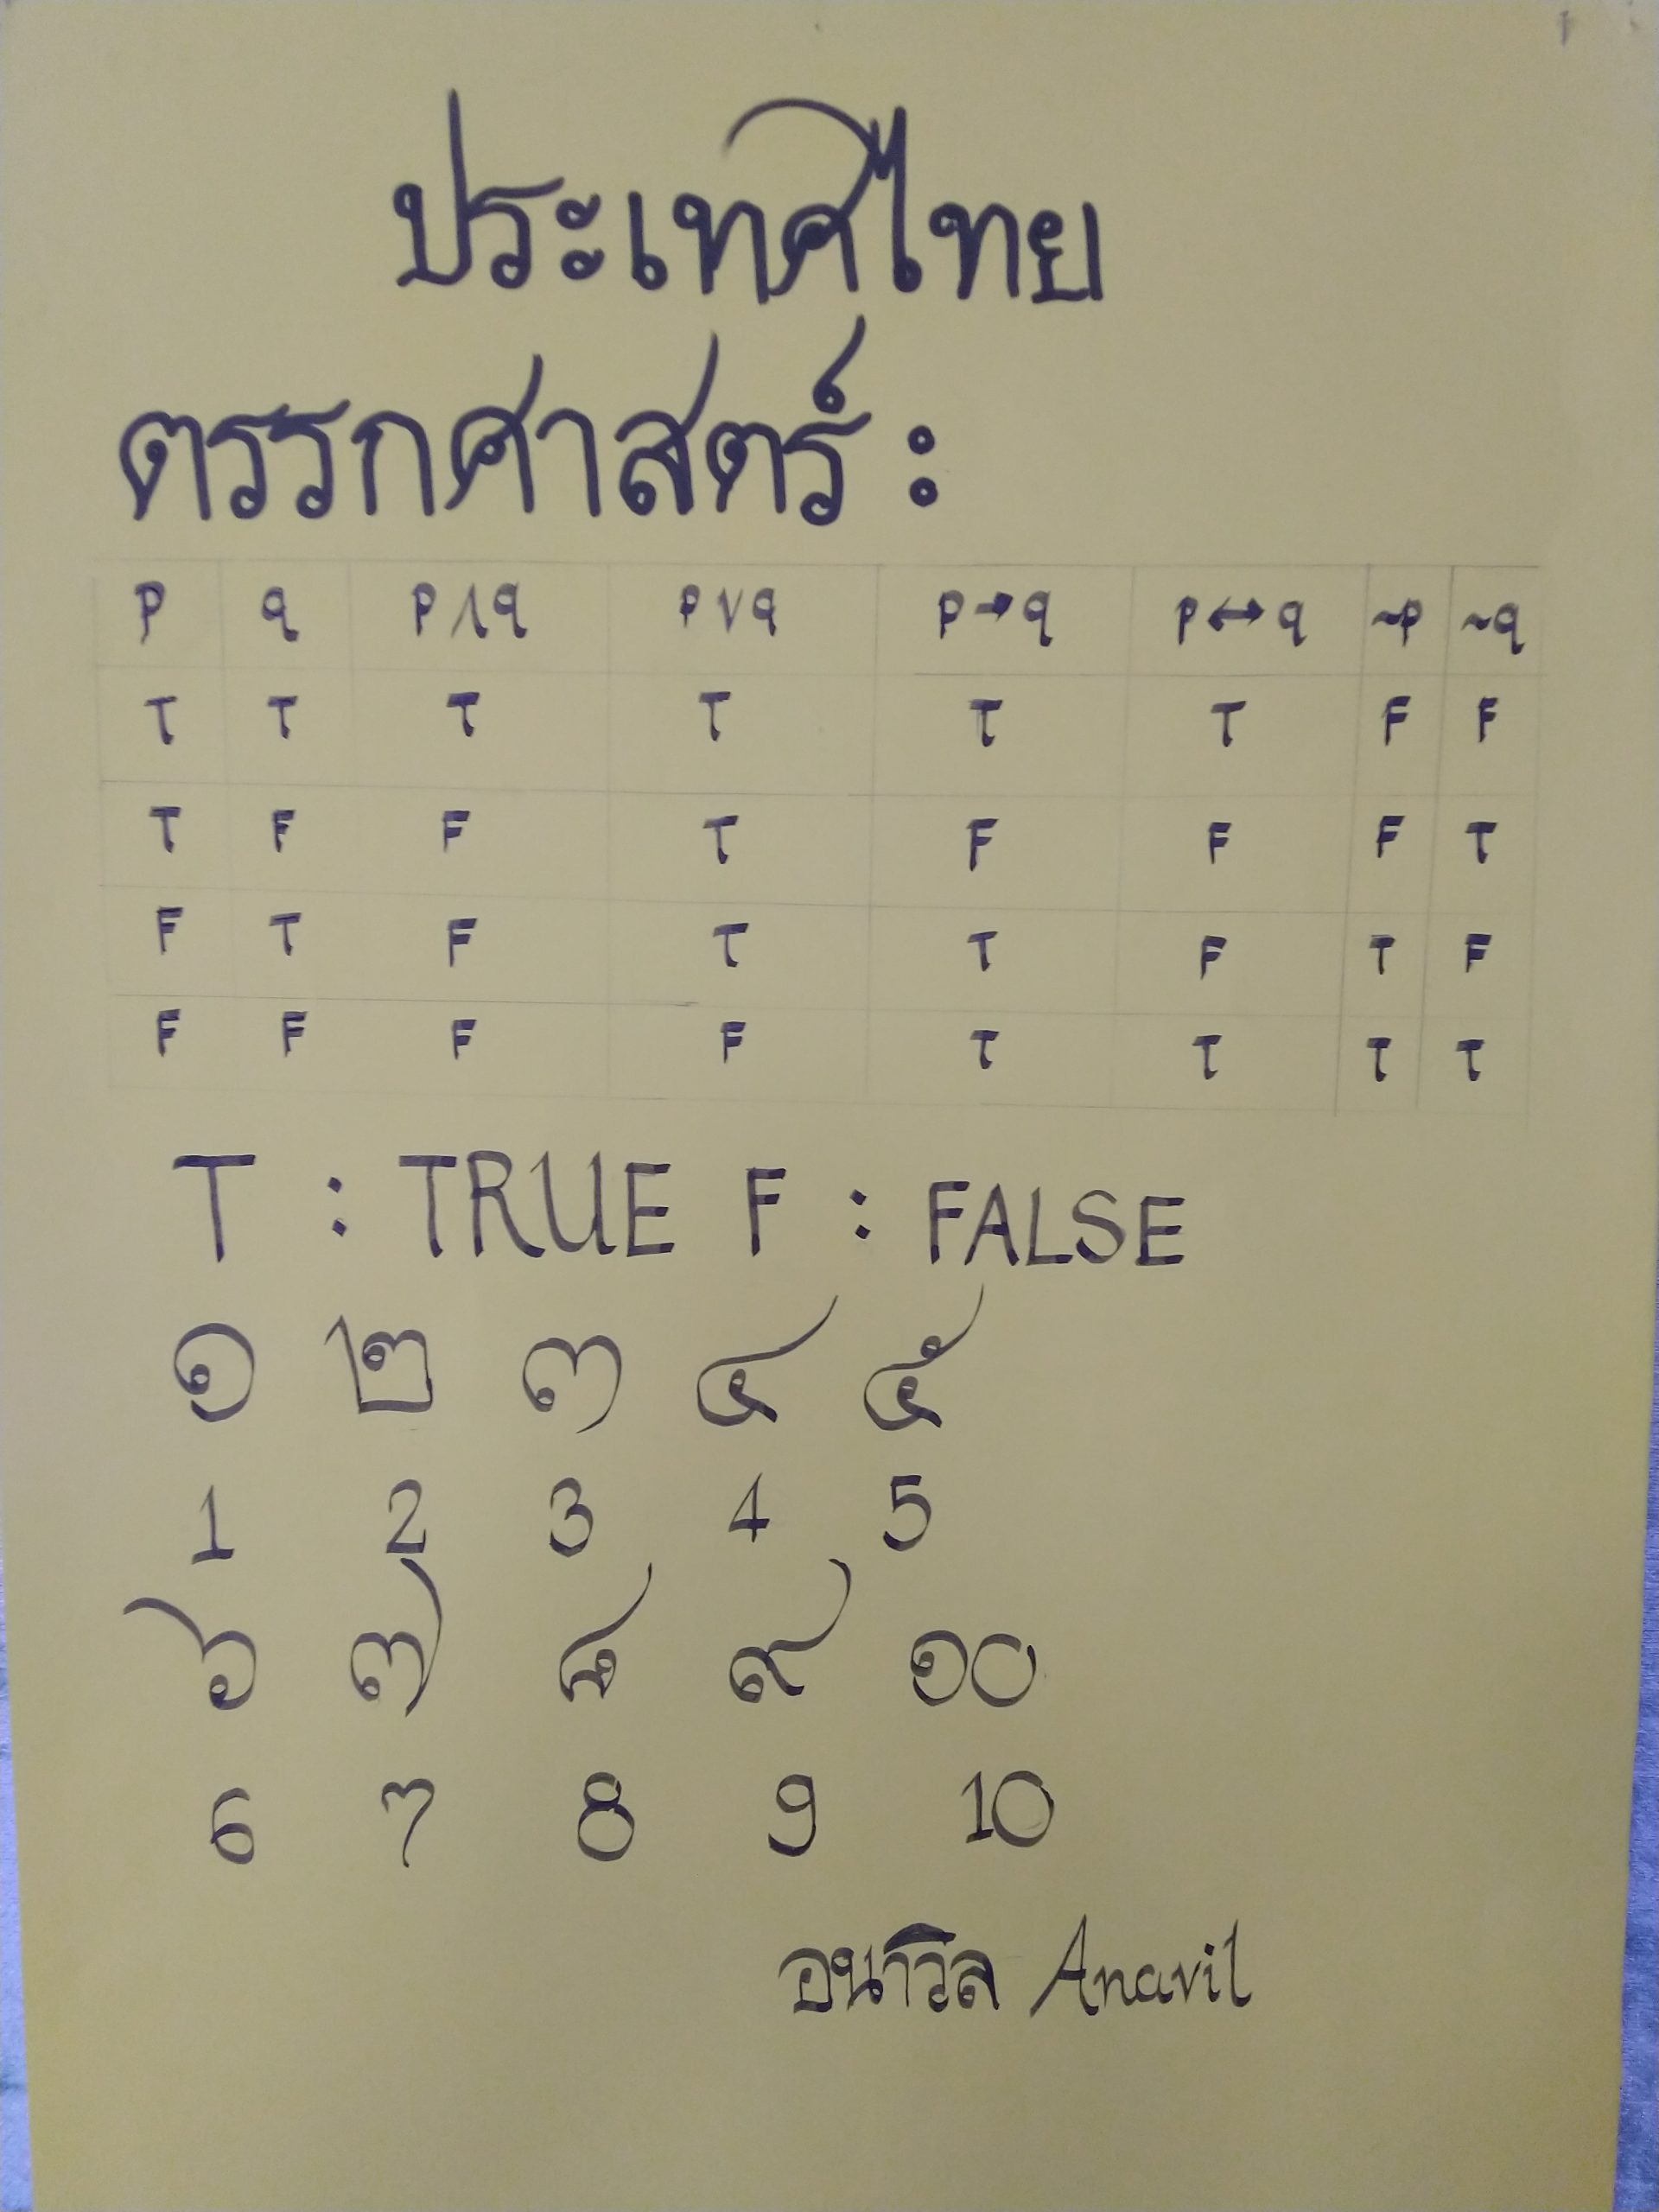 ประเทศไทย
ตรรกศาสตร์ :
p q p ∧ q p ∨ q p → q p ↔ q ~p ~q
T T T T T T F F
T F F T F F F T
F T F T T F T F
F F F F T T T T
T : TRUE F : FALSE
๑ ๒ ๓ ๔ ๕
1 2 3 4 5
๖ ๗ ๘ ๙ ๑๐
6 7 8 9 10
อนาวิล Anavil